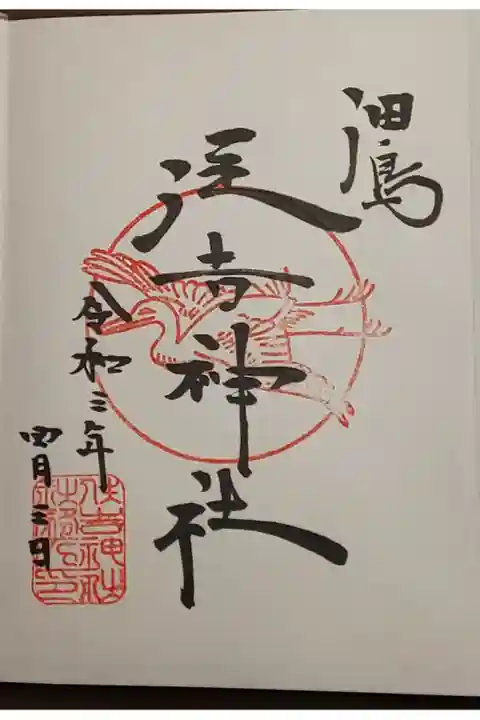 佃島
住吉神社
令和三年
四月三日
住吉神社